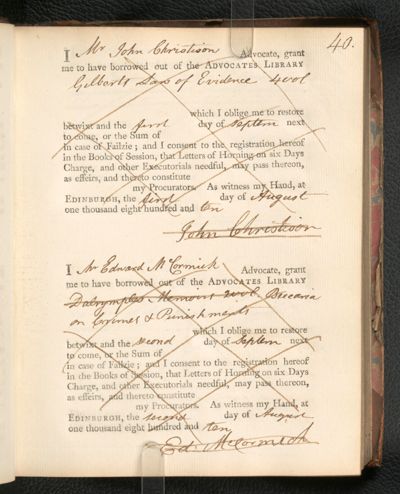 40.
I Mr John Christison Advocate, grant
me to have borrowed out of the ADVOCATES LIBRARY
Gilberts Law of Evidence 4 vol
which I oblige me to restore
betwixt and the third day of Septem next
to come, or the Sum of
in case of Failzie; and I consent to the registration hereof
in the Books of Session, that Letters of Horning on six Days
Charge, and other Executorials needful, may pass thereon,
as effeirs, and thereto constitute
my Procurators. As witness my Hand, at
EDINBURGH, the third day of August
one thousand eight hundred and ten
John Christison
I Mr Edward McCormick Advocate, grant
me to have borrowed out of the ADVOCATES LIBRARY
Dalrymples Memoirs 2 vol Beccaria
on Crimes & Punishments
which I oblige me to restore
betwixt and the second day of Septem next
to come, or the Sum of
in case of Failzie; and I consent to the registration hereof
in the Books of Session, that Letters of Horning on six Days
Charge, and other Executorials needful, may pass thereon,
as effeirs, and thereto constitute
my Procurators. As witness my Hand, at
EDINBURGH, the second day of August
one thousand eight hundred and ten
Ed. McCormick